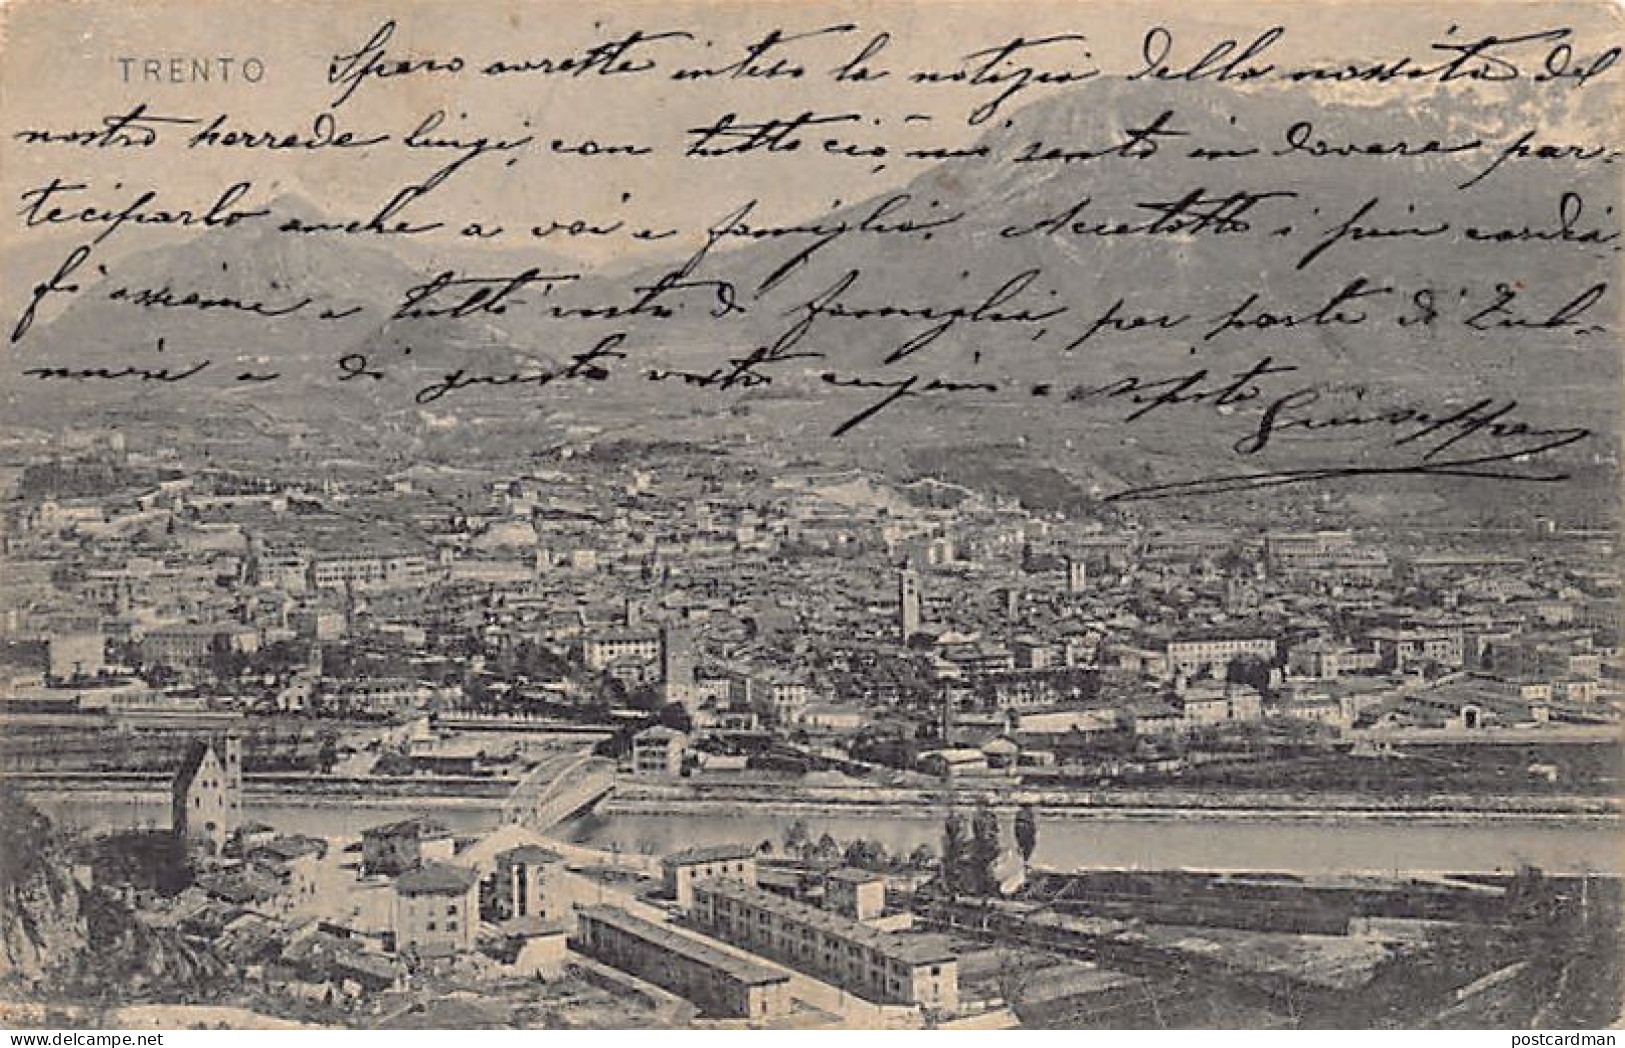 TRENTO
Spero avrette inteso la notizia della nassita del
nostro herrede Luigi, con tutto ciò, mi sento in dovere par-
teciparlo anche a voi e famiglia. Accetatto i più cordia-
li assieme a tutto vostri di famiglia, per parte di
e di questo vostro cugino e Nipote
Giuseppe
postcardman